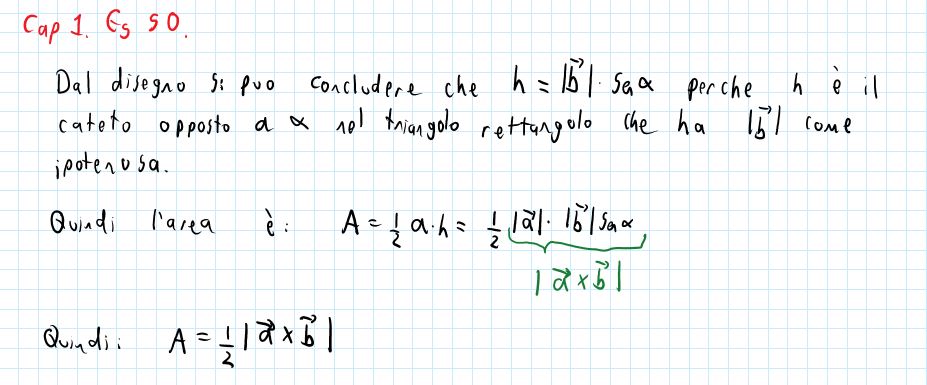 Cap 1. Es 50.
Dal disegno si puo concludere che h = |b⃗| · sen α perche h è il
cateto opposto a α nel triangolo rettangolo che ha |b⃗| come
ipotenusa.
Quindi l'area è: A = ½ a·h = ½ |a⃗| · |b⃗| sen α
|a⃗ × b⃗|
Quindi: A = ½ |a⃗ × b⃗|